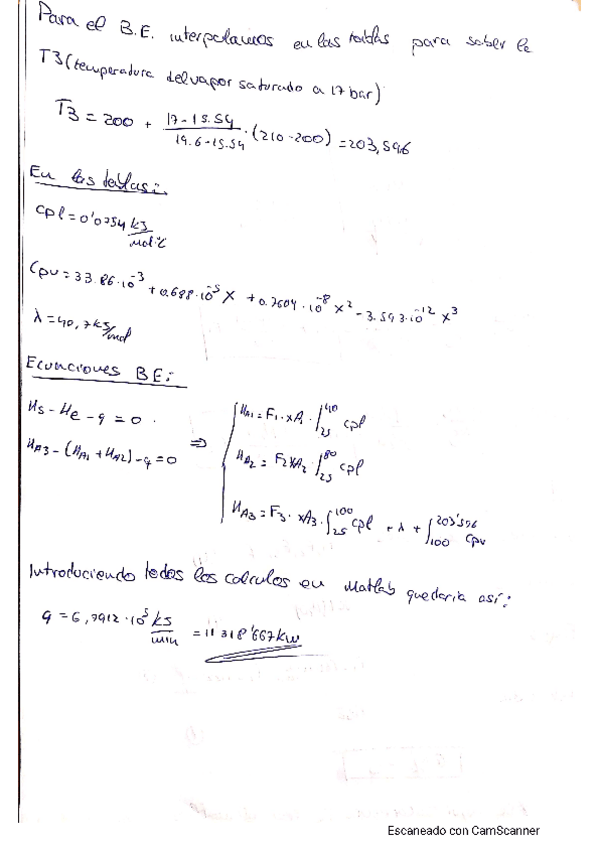 Para el B.E. interpolamos en las tablas para saber la
T3 (temperatura del vapor saturado a 17 bar)
T3 = 200 + (17-15.54)/(19.6-15.54) · (210-200) = 203,596
En las tablas:
Cpl = 0'0754 kJ/mol·ºC
Cpv = 33.86·10^-3 + 0.688·10^-5 X + 0.7604·10^-8 X^2 - 3.593·10^-12 X^3
λ = 40,7 kJ/mol
Ecuaciones BE:
Hs - He - q = 0 .
HA3 - (HA1 + HA2) - q = 0 ⇒
HA1 = F1 · XA · ∫_25^40 Cpl
HA2 = F2 XA2 ∫_25^80 Cpl
HA3 = F3 · XA3 · ∫_25^100 Cpl + λ + ∫_100^203'596 Cpv
Introduciendo todos los calculos en Matlab quedaria así:
q = 6,7912·10^5 kJ/min = 11318'667 kW
Escaneado con CamScanner